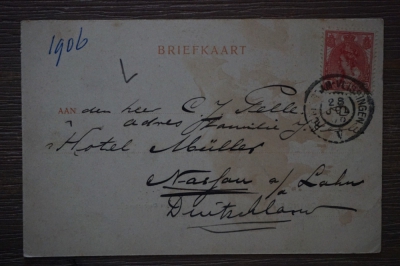 1906
BRIEFKAART
AAN den heer C J
adres Familie
Hotel Müller
Nassau a/d Lahn
Duitschland
VLISSINGEN
28